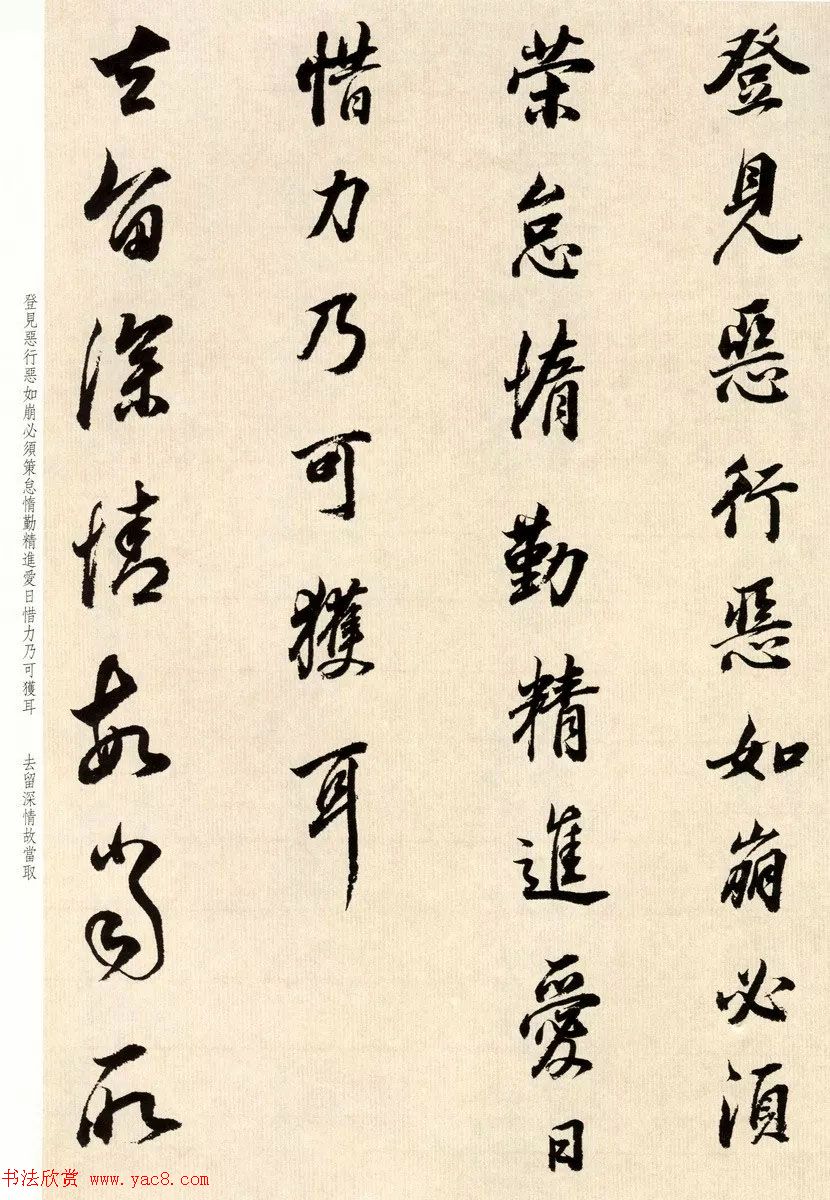 登見惡行惡如崩必須
策怠惰勤精進愛日
惜力乃可獲耳
去留深情故當取
登見惡行惡如崩必須策怠惰勤精進愛日惜力乃可獲耳 去留深情故當取
书法欣赏 www.yac8.com